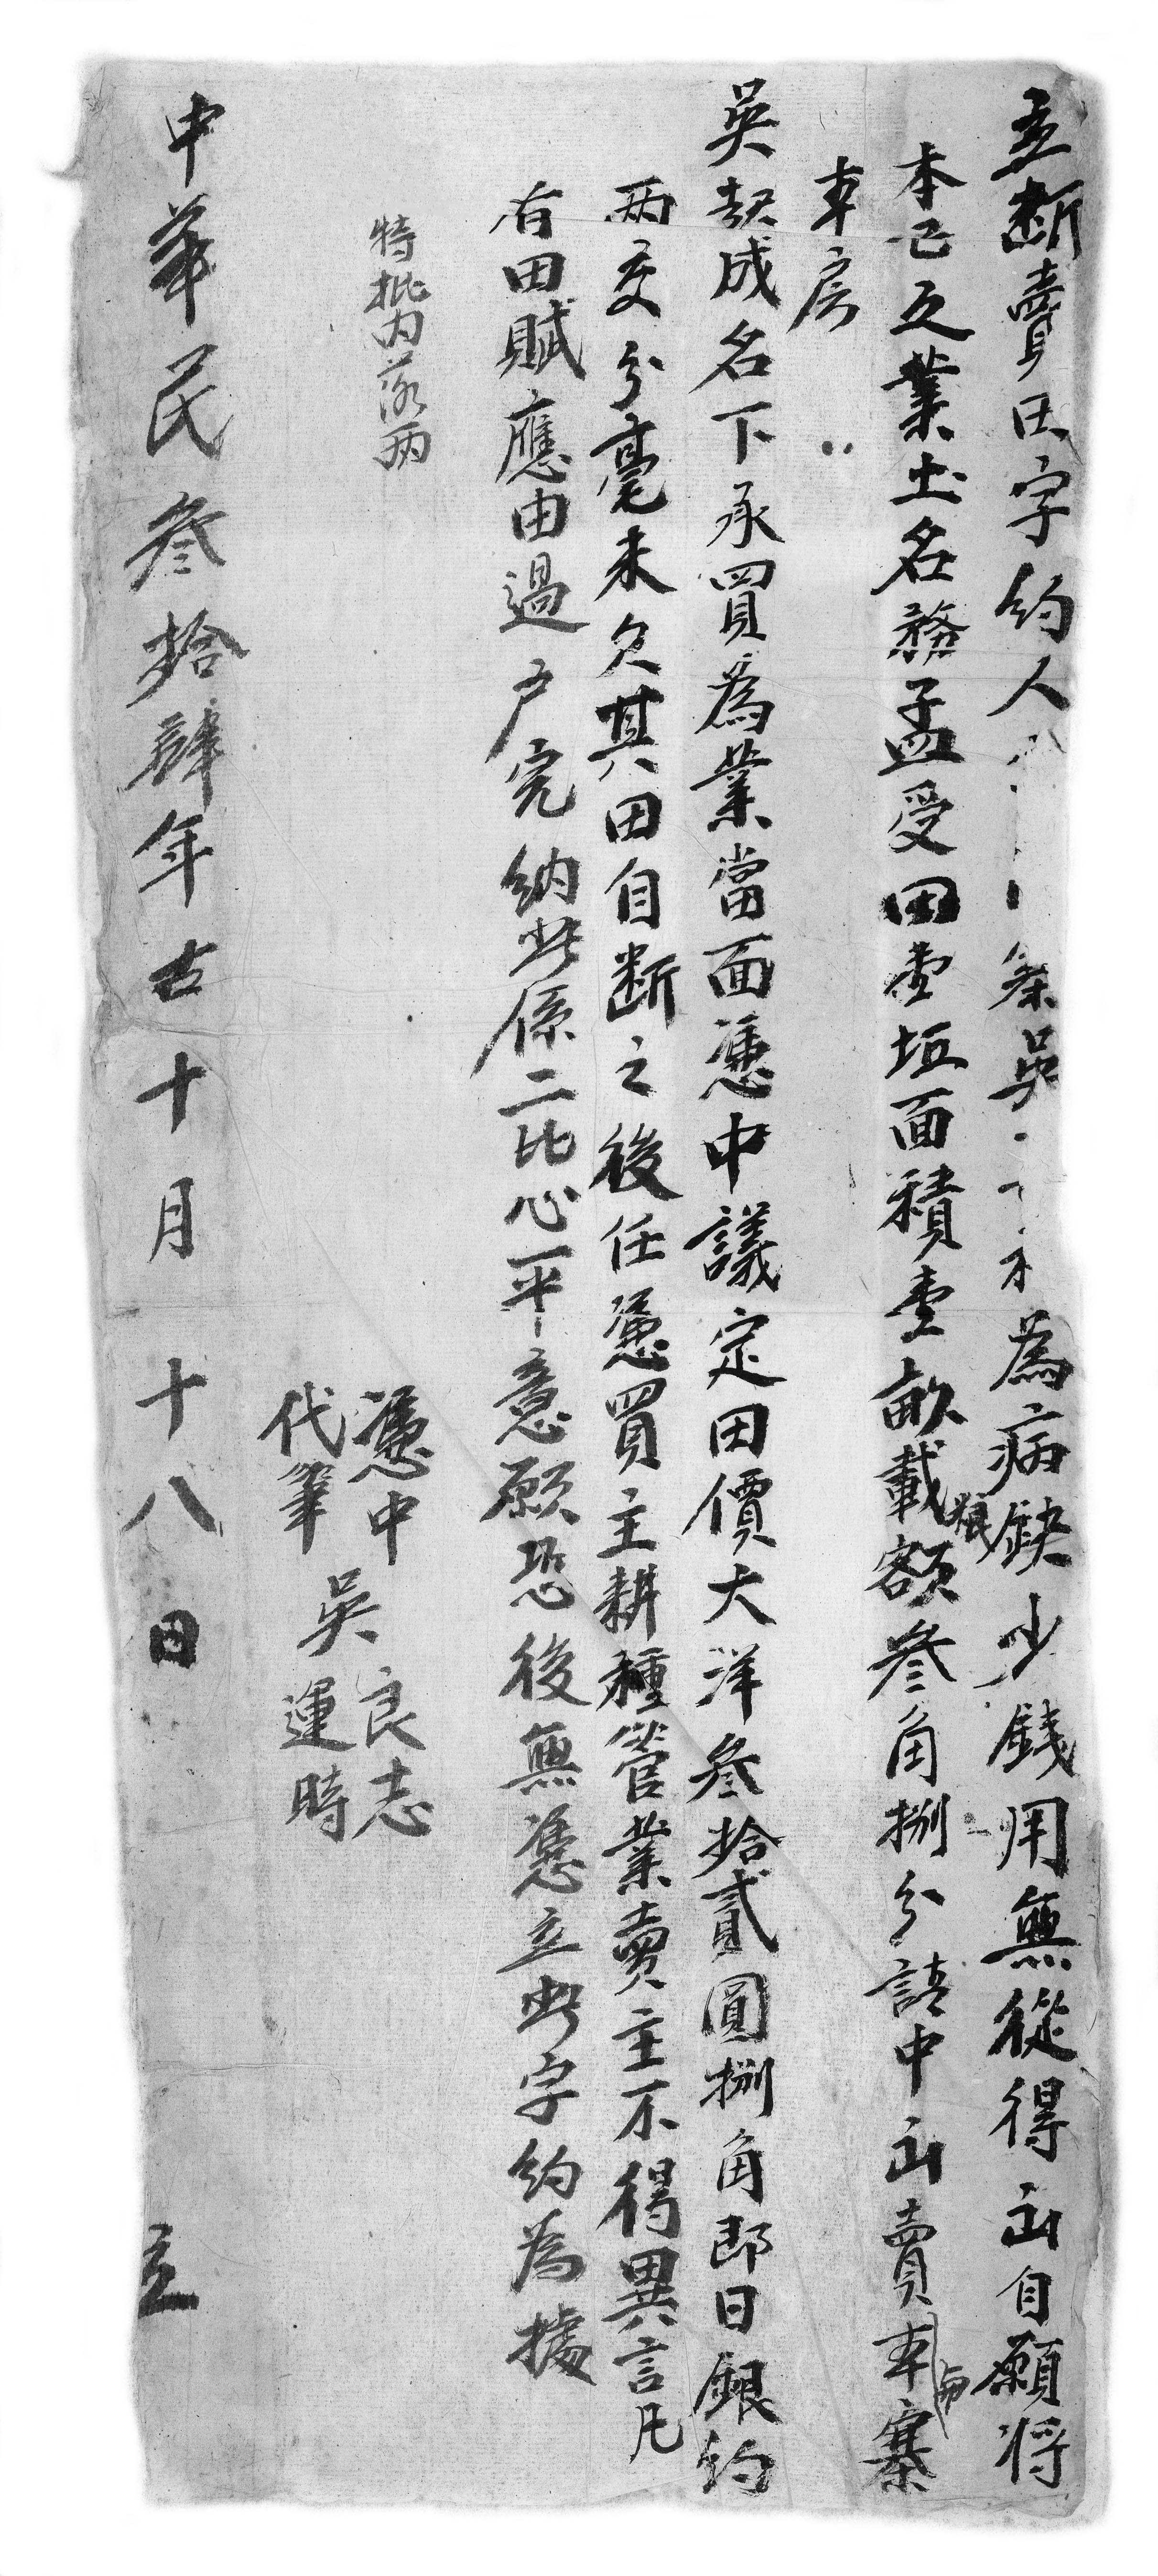 立斷賣田字約人 吳 為病缺少錢用無從得出自願将
本己之業土名務孟受田壹坵面積壹畝載粮額叁角捌分請中出賣車寨
車房
吳契成名下承買為業當面憑中議定田價大洋叁拾貳圓捌角即日銀約
兩交分毫未欠其田自断之後任憑買主耕種管業賣主不得異言凡
有田賦應由過户完納此係二比心平意願恐後無憑立此字約為據
特批內落兩
憑中 吳良志
代筆 吳運時
中華民叁拾肆年古十月十八日 立